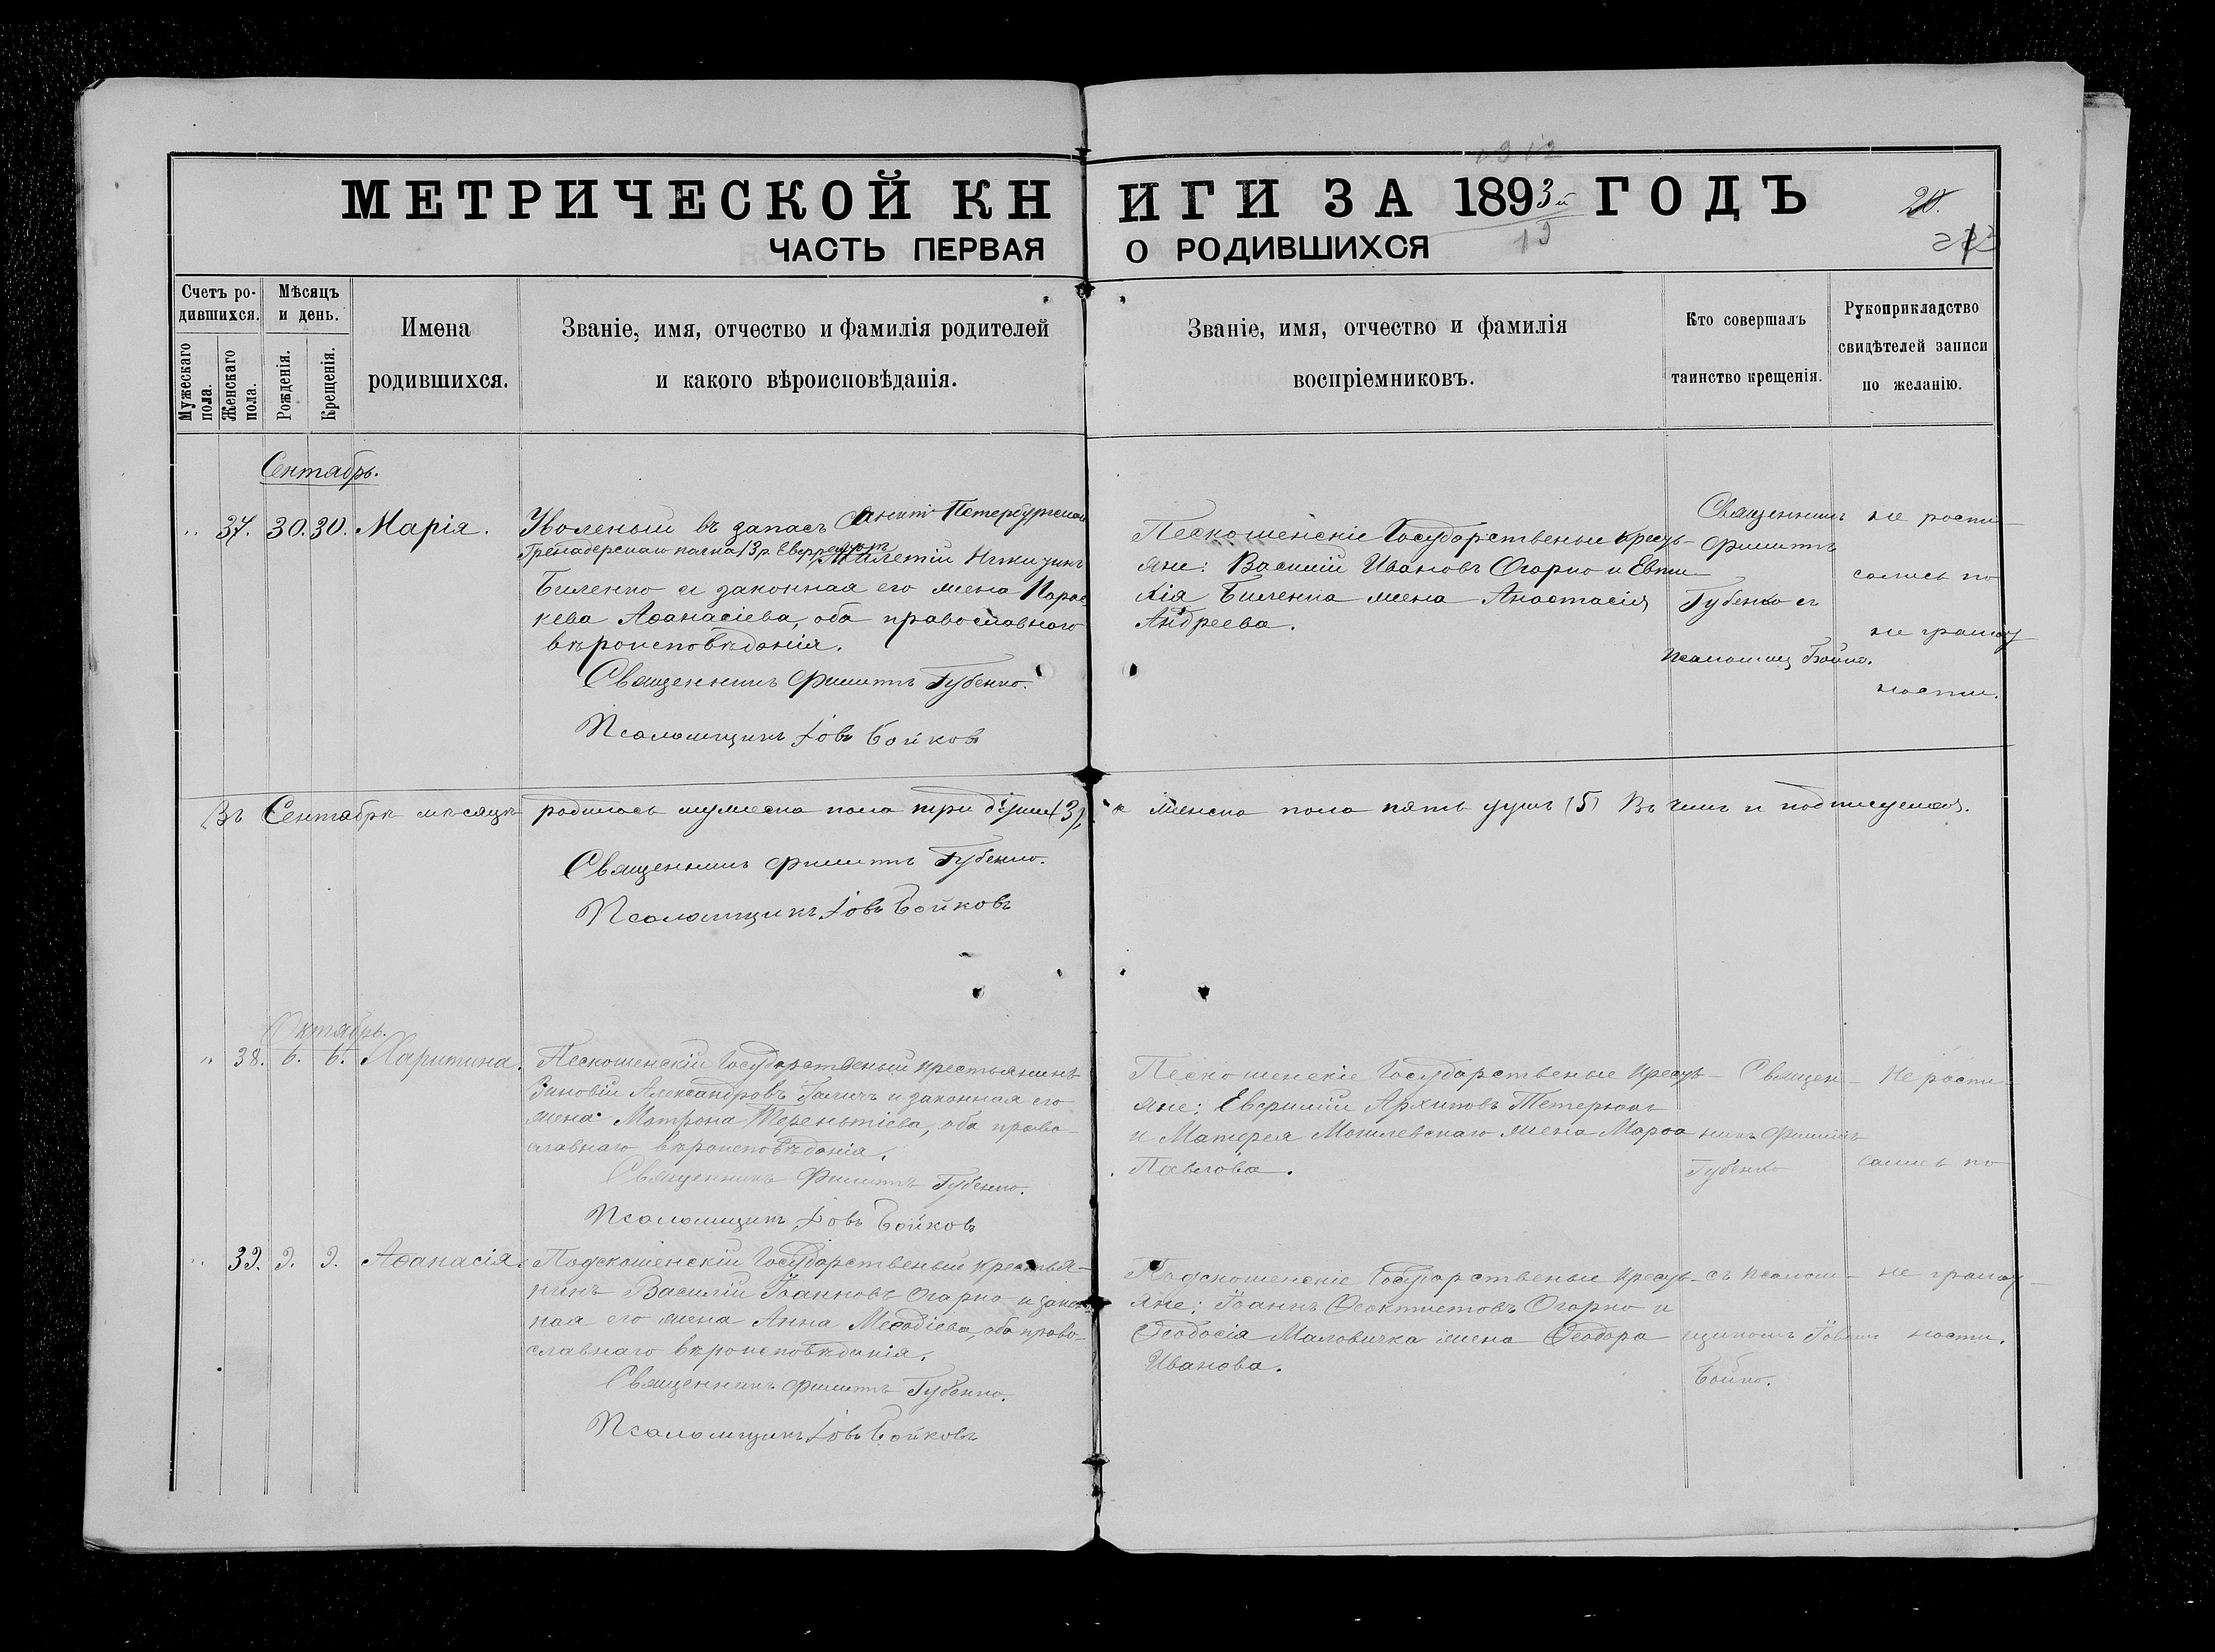 МЕТРИЧЕСКОЙ КНИГИ ЗА 1893й ГОДЪ
20.
ЧАСТЬ ПЕРВАЯ О РОДИВШИХСЯ
19
Счетъ родившихся.
Мужескаго пола.
Женскаго пола.
Мѣсяцъ и день.
Рожденія.
Крещенія.
Имена
родившихся.
Званіе, имя, отчество и фамилія родителей
и какого вѣроисповѣданія.
Званіе, имя, отчество и фамилія
воспріемниковъ.
Кто совершалъ
таинство крещенія.
Рукоприкладство
свидѣтелей записи
по желанію.
Сентябрь.
" 37. 30. 30. Марія.
Уволеный въ запасъ Санкт-Петербургскаго
Гренадерскаго полка
Биленко и законная его жена Парас
кева Аѳанасіева, оба православнаго
вѣроисповѣданія.
Священникъ Филиппъ Губенко.
Псаломщикъ Іовъ Бойковъ
Пескошенскіе Государственые кресть-
яне: Василій Ивановъ Огарко и Евти
хія Биленка жена Анастасія
Андреева.
Священникъ
Филиппъ
Губенко съ
Псаломщ Бойко.
не роспи-
сались по
не грамот-
ности.
Въ Сентябрѣ мѣсяцѣ родилось мужеска пола три души (3), а женска пола пять душъ (5) Въ чемъ и подписуемся.
Священникъ Филиппъ Губенко.
Псаломщикъ Іовъ Бойковъ
Октябрь.
" 38. 6. 6. Харитина.
Пескошенскій Государственый крестьянинъ
Зиновій Александровъ и законная его
жена Мотрона Терентіева, оба право-
славнаго вѣроисповѣданія.
Священникъ Филиппъ Губенко.
Псаломщикъ Іовъ Бойковъ
Пескошенскіе Государственые кресть-
яне: Евфимій Архиповъ Тетерюкъ
и Матфея Могилевскаго жена Марѳа
Павлова.
Священ-
никъ Филиппъ
Губенко
Не роспи-
сались по
" 39. 9. 9. Аѳанасія.
Подскошенскій Государственый крестья-
нинъ Василій Іоанновъ Огарко и закон
ная его жена Анна Меѳодіева, оба право-
славнаго вѣроисповѣданія.
Священникъ Филиппъ Губенко.
Псаломщикъ Іовъ Бойковъ
Подскошенскіе Государственые кресть-
яне: Іоаннъ Ѳеоктистовъ Огарко и
Ѳеодосія Маловичка жена Ѳеодора
Иванова.
съ псалом-
щикомъ Іовомъ
Бойко.
не грамот-
ности.